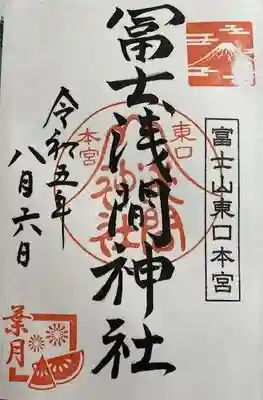 富士山東口本宮
冨士浅間神社
東口
本宮
浅間
神社
令和五年
八月六日
葉月